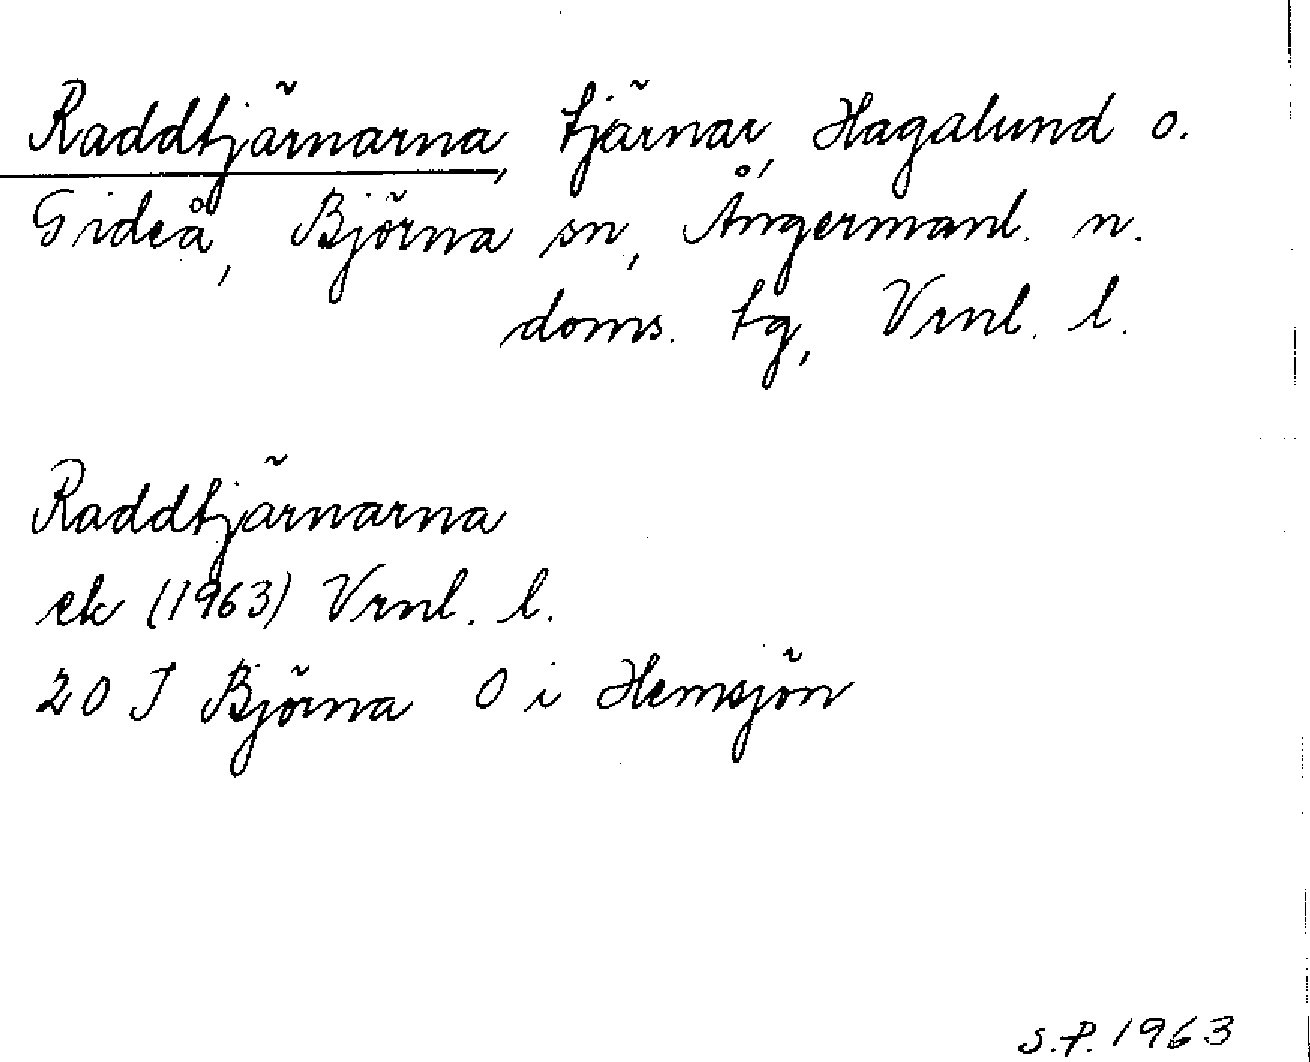 Raddtjärnarna, tjärnar, Hagalund o.
Gideå, Björna sn, Ångermanl. n.
doms. tg, Vrnl. l.
Raddtjärnarna
ek (1963) Vrnl. l.
20 J Björna O i Hemsjön
S.P. 1963